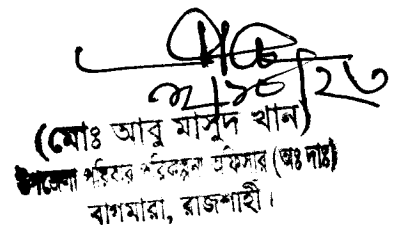 (মোঃ আবু মাসুদ খান)
উপজেলা পরিবার পরিকল্পনা অফিসার (অঃ দাঃ)
বাগমারা, রাজশাহী।